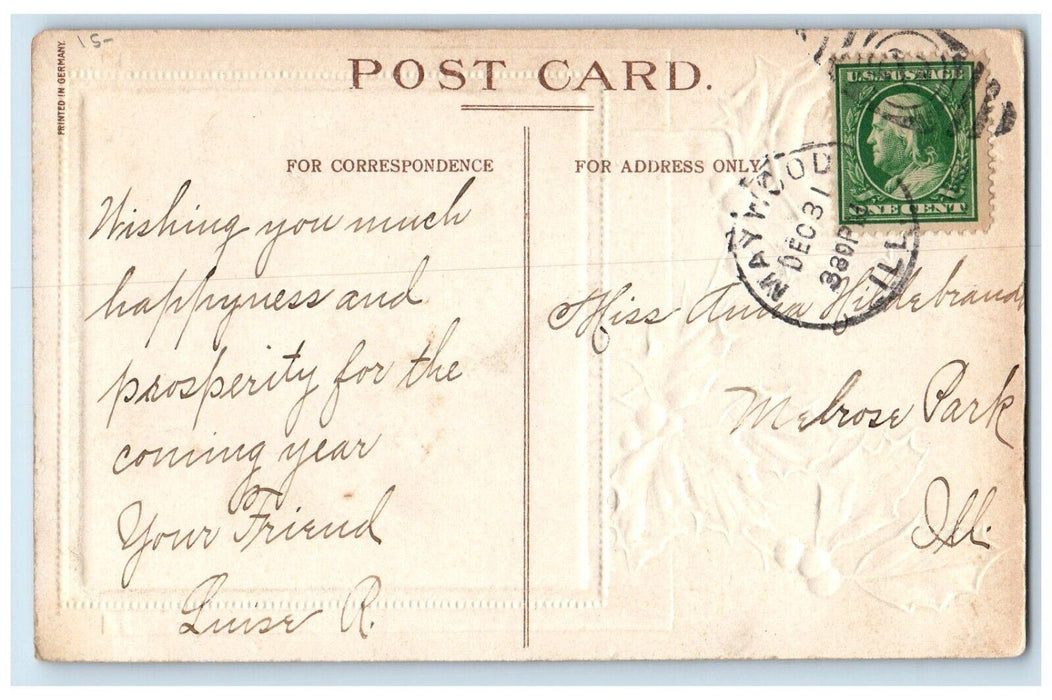 15-
PRINTED IN GERMANY.
POST CARD.
FOR CORRESPONDENCE
FOR ADDRESS ONLY
U.S. POSTAGE
ONE CENT
MAYWOOD
DEC 31
330PM
ILL
Wishing you much
happyness and
prosperity for the
coming year
Your Friend
Luise R.
Miss Anna Hildebrandt
Melrose Park
Ill.